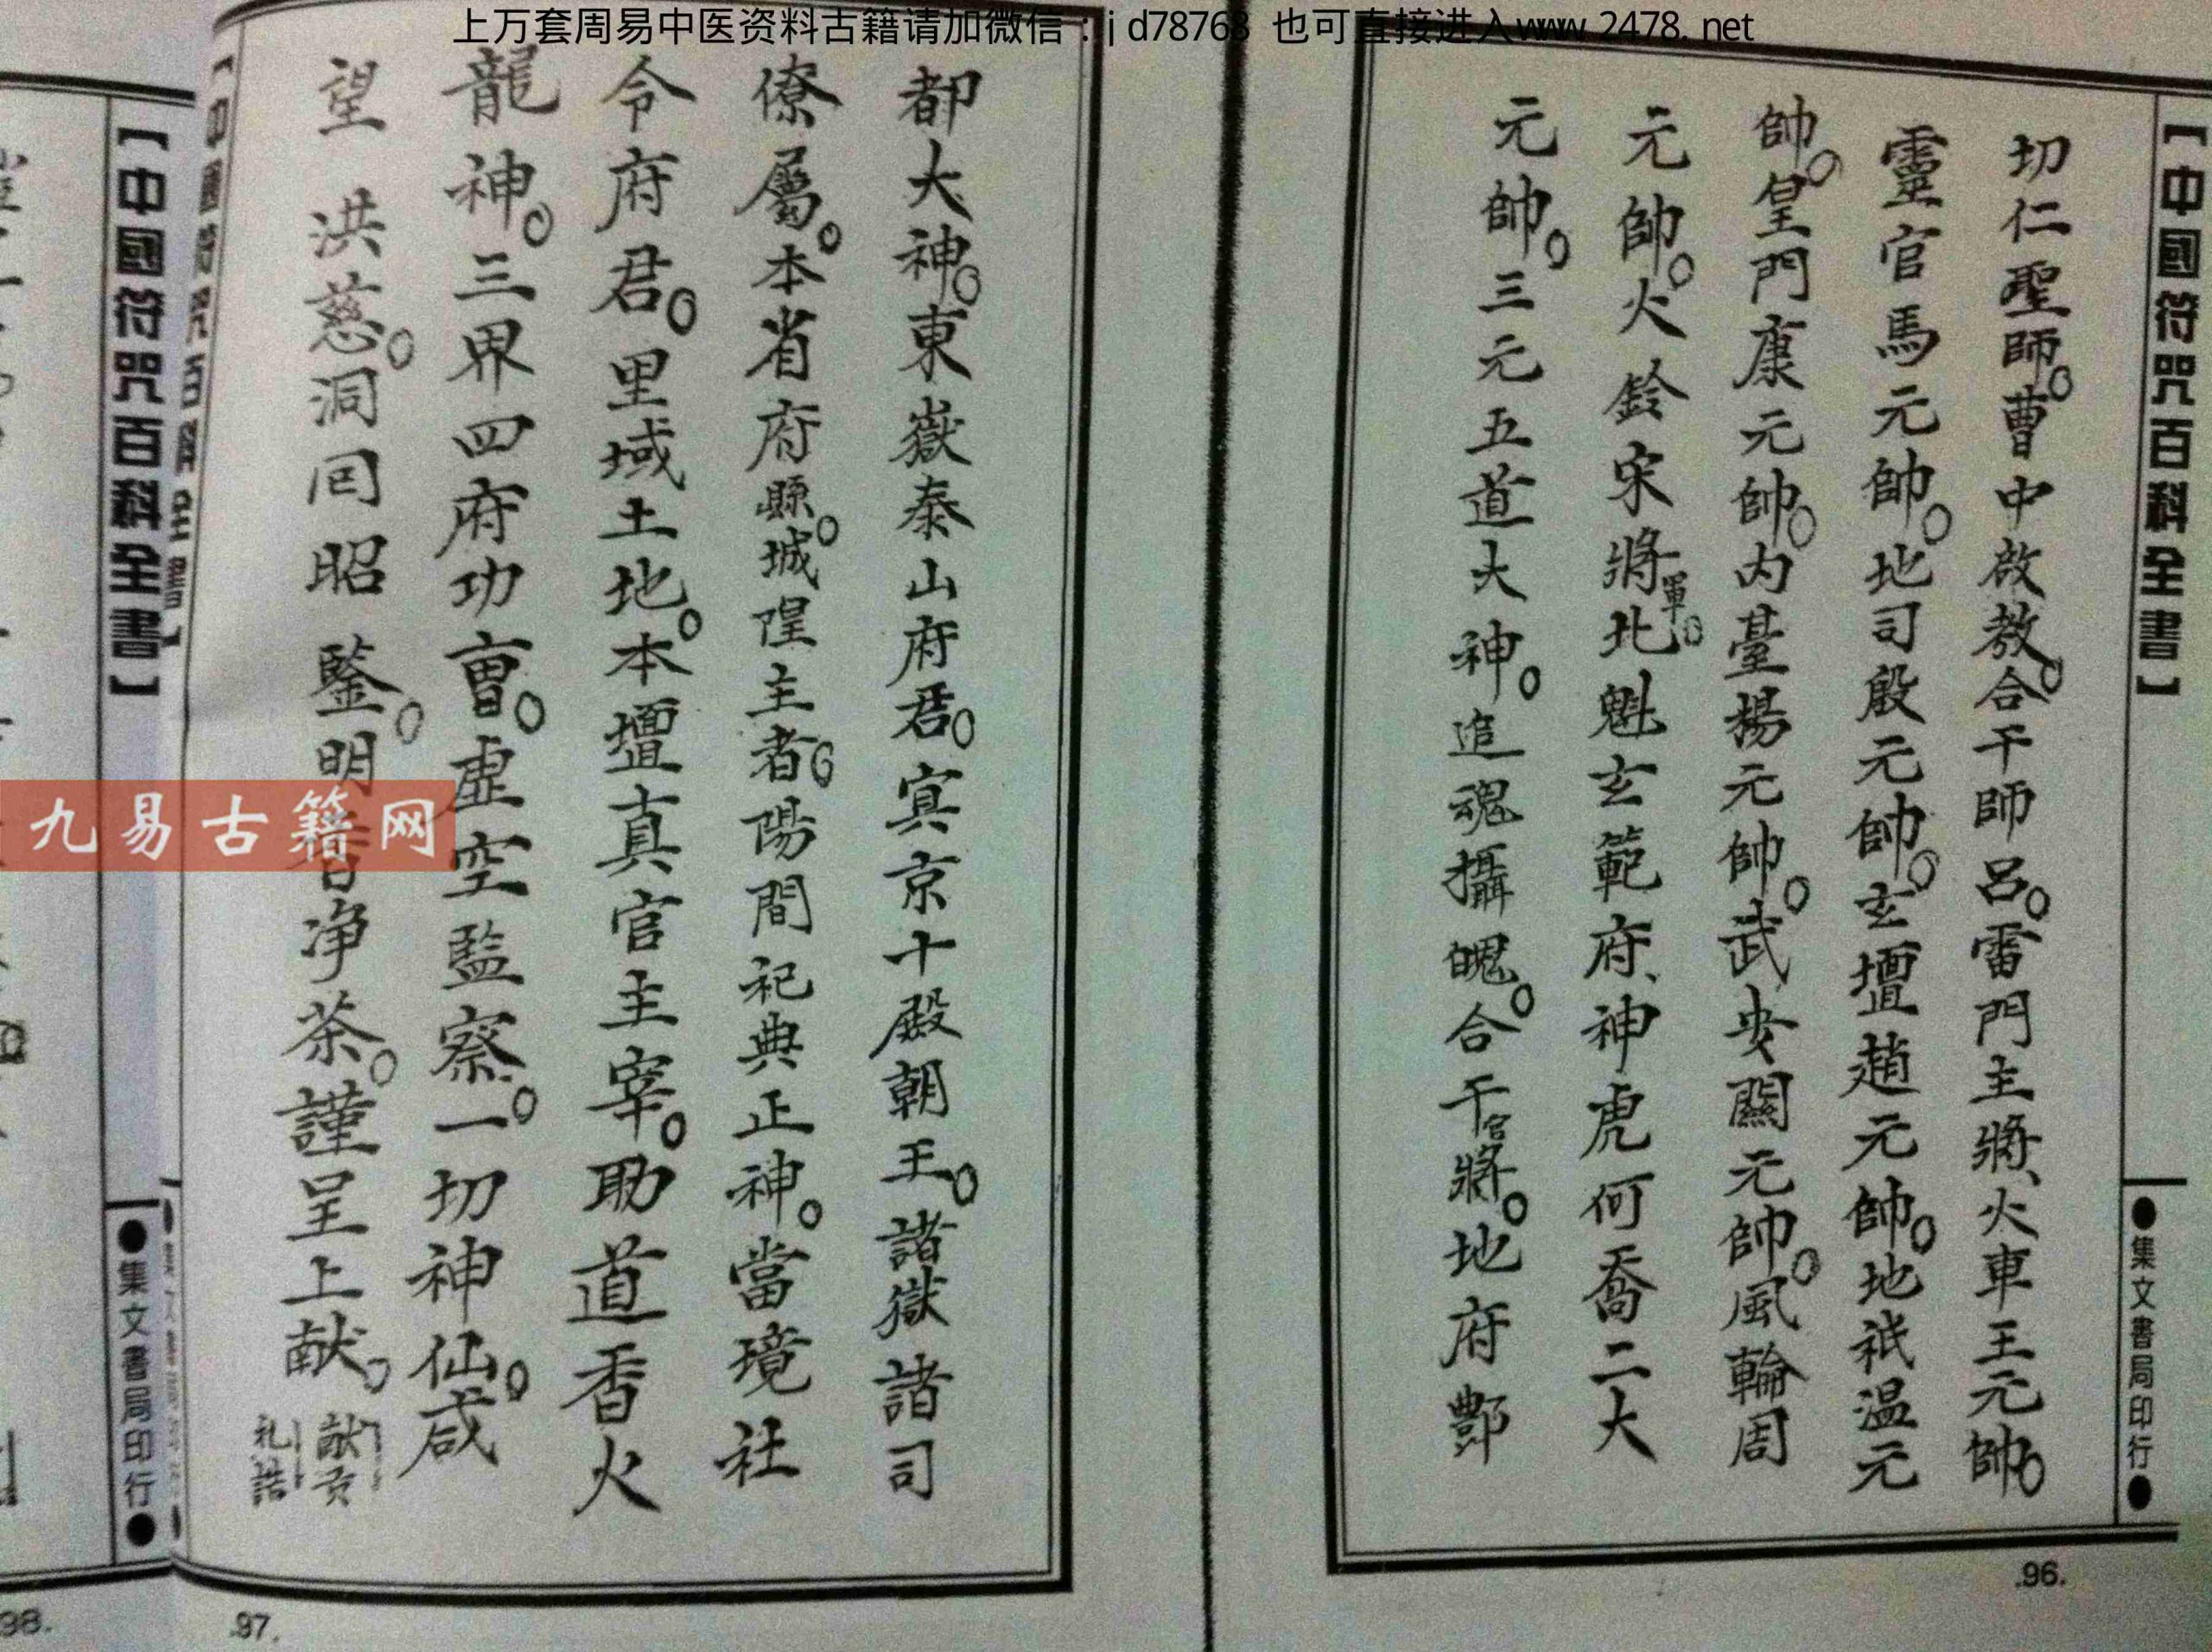 上万套周易中医资料古籍请加微信：jd78768 也可直接进入www.2478.net
【中國符咒百科全書】
●集文書局印行●
切仁聖師。曹中啟教。合干師呂。雷門主將、火車王元帥。
靈官馬元帥。地司殷元帥。玄壇趙元帥。地祇温元
帥。皇門康元帥。内臺楊元帥。武安關元帥。風輪周
元帥。火鈴宋將軍。北魁玄範府、神虎何喬二大
元帥。三元五道大神。追魂攝魄。合干官將。地府酆
.96.
都大神。東嶽泰山府君。冥京十殿朝王。諸獄諸司
僚屬。本省府縣。城隍主者。陽間祀典正神。當境社
令府君。里域土地。本壇真官主宰。助道香火
龍神。三界四府功曹。虛空監察。一切神仙。咸
望 洪慈。洞回昭 鑒。明香净茶。謹呈上献。
献貢
礼誥
.97.
【中國符咒百科全書】
【中國符咒百科全書】
●集文書局印行●
98.
九易古籍网